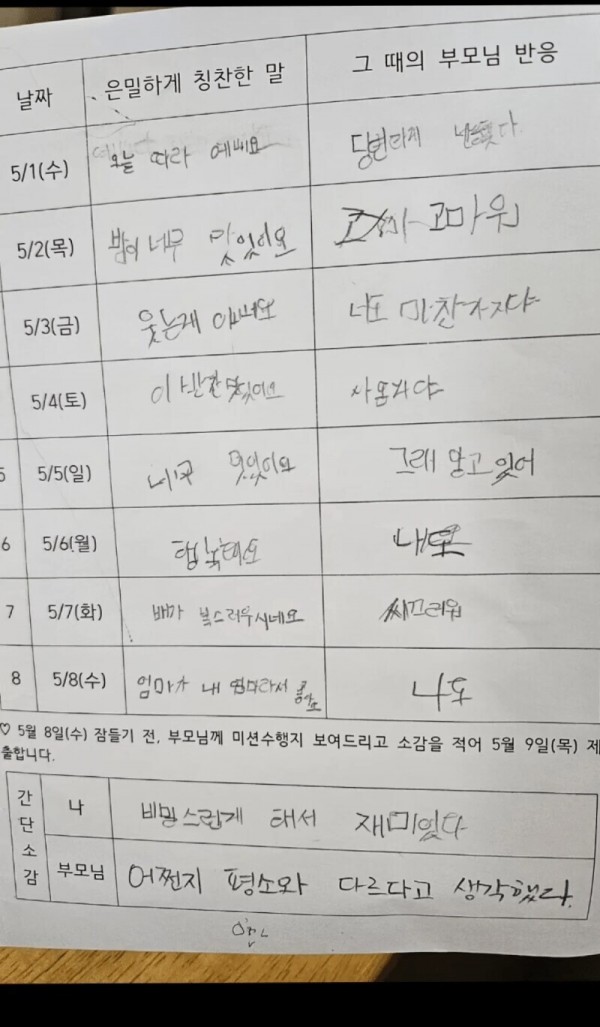 날짜 은밀하게 칭찬한 말 그 때의 부모님 반응
5/1(수) 오늘 따라 예뻐요
5/2(목) 밥이 너무 맛있어요 고마워
5/3(금) 웃는게 너도 마찬가지다
5/4(토) 이 반찬 맛있어요
5 5/5(일) 멋있어요 그래 알고 있어
6 5/6(월) 행복해요 나도
7 5/7(화) 배가 복스러우시네요 씨끄러워
8 5/8(수) 엄마가 내 엄마라서 좋아요 나도
♡ 5월 8일(수) 잠들기 전, 부모님께 미션수행지 보여드리고 소감을 적어 5월 9일(목) 제
출합니다.
간단소감
나 비밀스럽게 해서 재미있다
부모님 어쩐지 평소와 다르다고 생각했다.